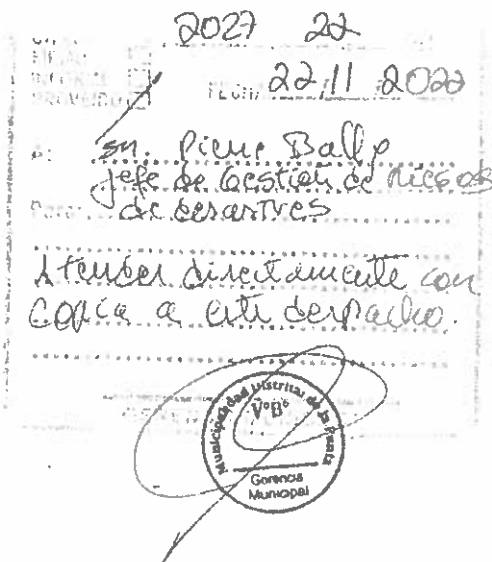 2027 22
PROVEIDO
FECHA 22/11 2022
Sr. Pierre Bally
Jefe de Gestión de Riesgos
de desastres
Atender directamente con
copia a este despacho.
Municipalidad Distrital de la Punta
VºBº
Gerencia
Municipal